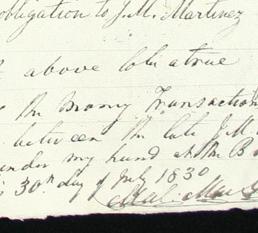 obligation to J.M. Martinez
above
a true
the many Transaction
between the late J.M.
under my hand at the B
30th day of July 1830